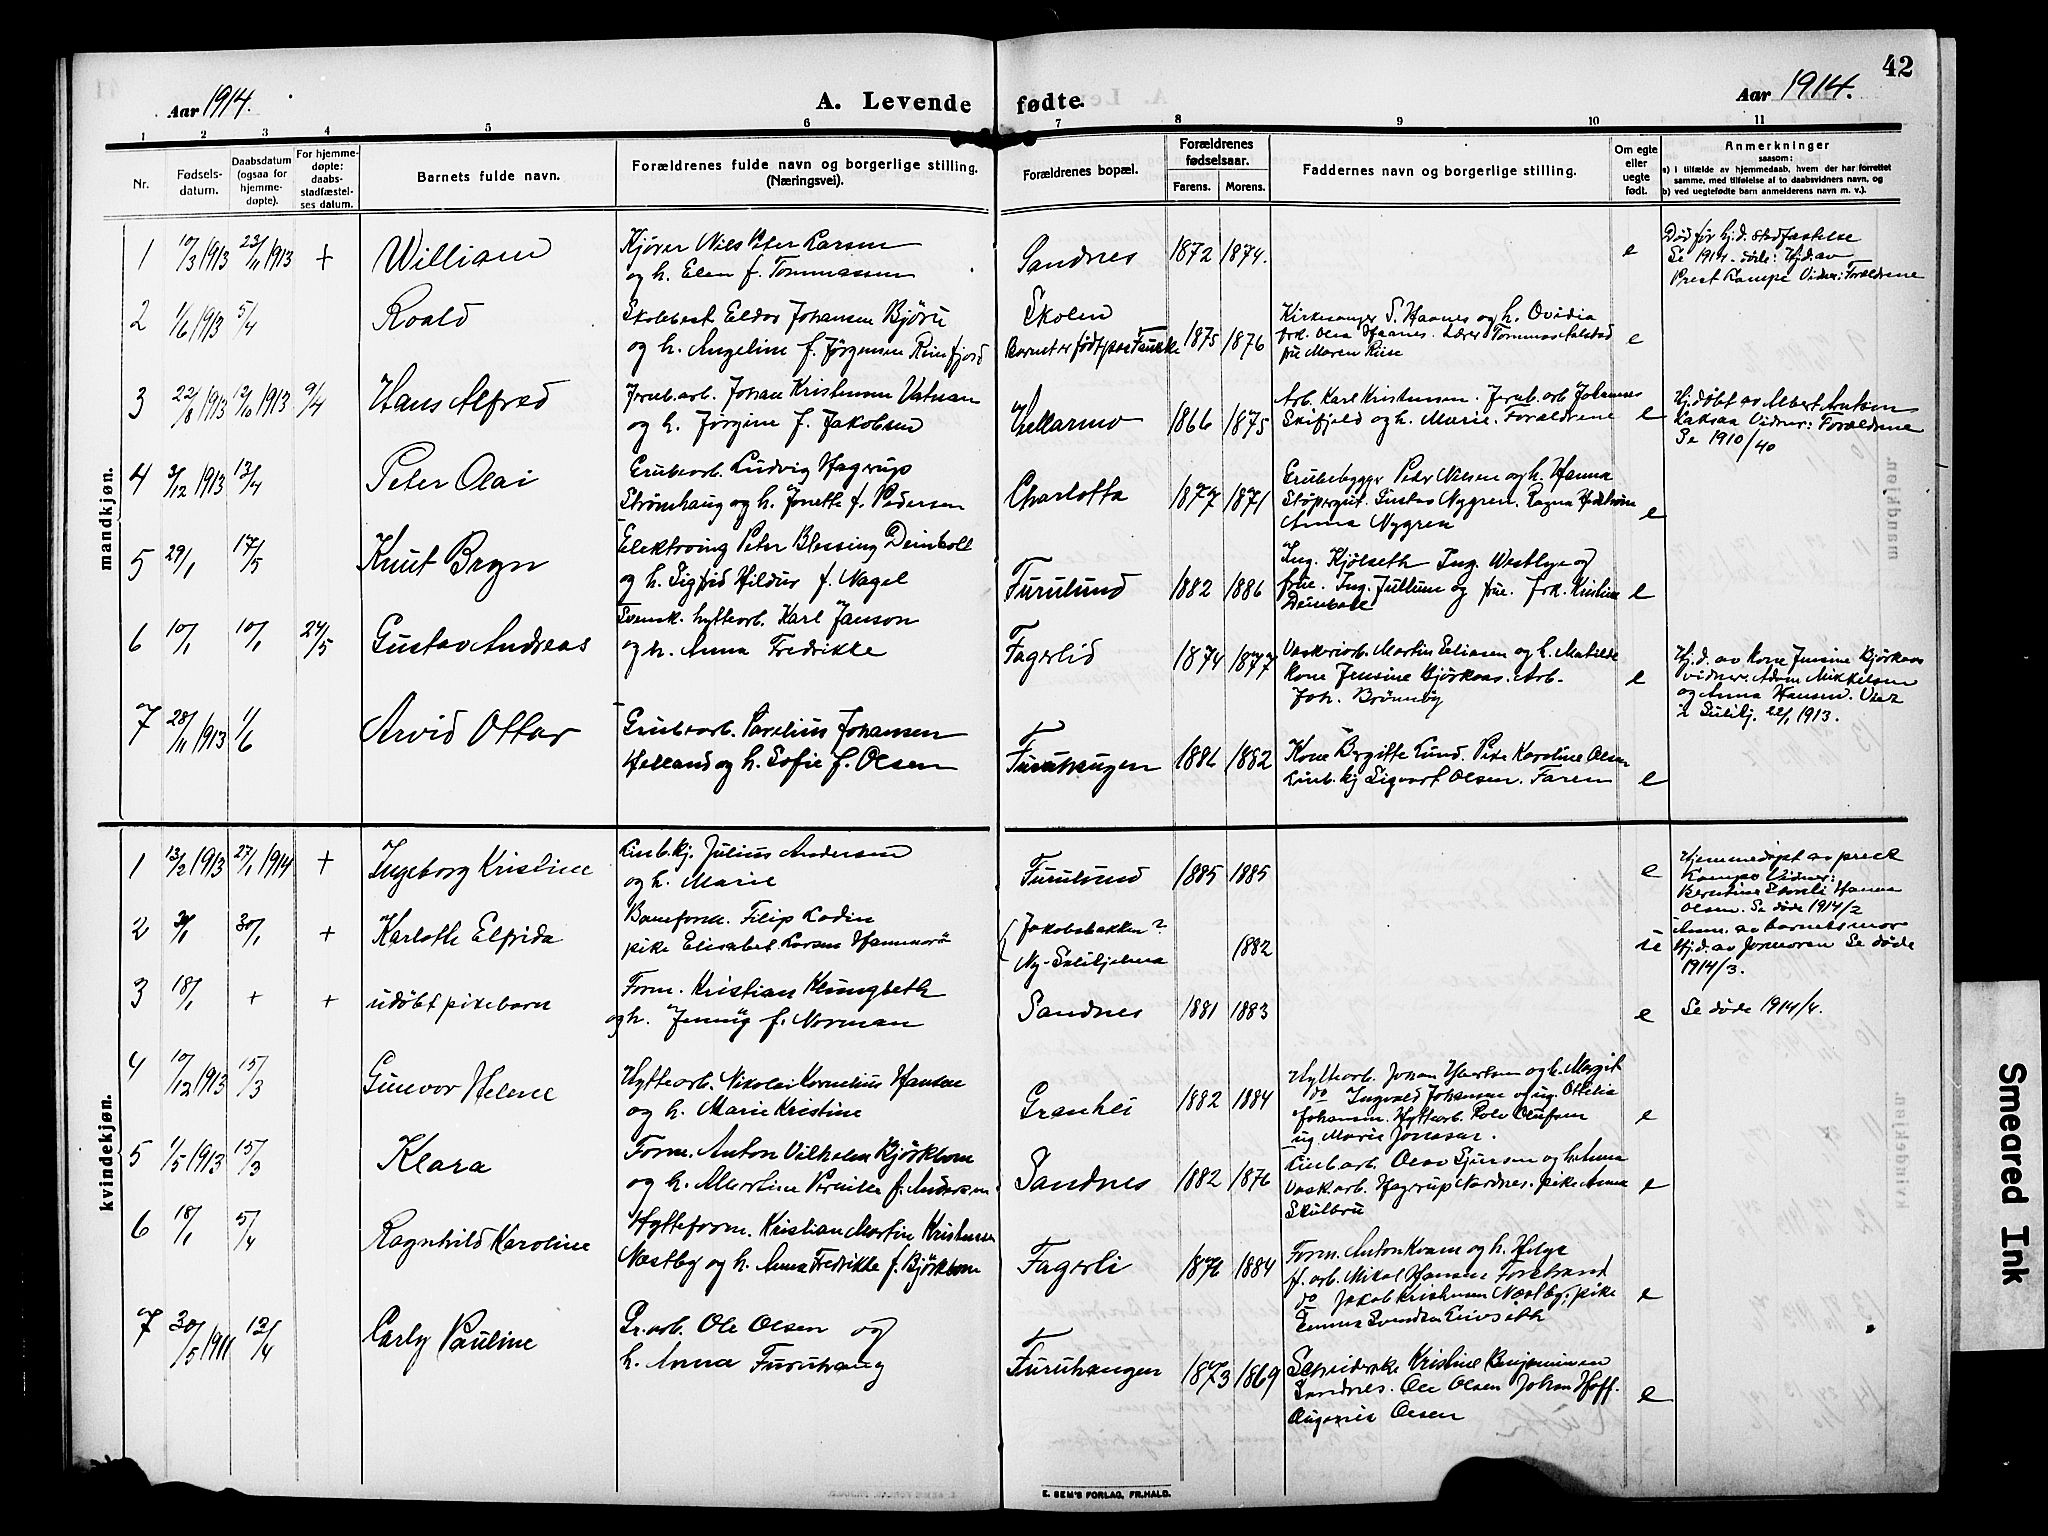 42
Aar 1914.
A. Levende fødte.
Aar 1914.
1 2 3 4 5 6 7 8 9 10 11
Nr.
Fødsels-
datum.
Daabsdatum
(ogsaa for
hjemme-
døpte).
For hjemme-
døpte:
daabs-
stadfæstel-
ses datum.
Barnets fulde navn.
Forældrenes fulde navn og borgerlige stilling.
(Næringsvei).
Forældrenes bopæl.
Forældrenes
fødselsaar.
Farens. Morens.
Faddernes navn og borgerlige stilling.
Om egte
eller
uegte
født.
Anmerkninger
saasom:
a) i tilfælde av hjemmedaab, hvem der har forrettet
samme, med tilføielse af to daabsvidners navn, og
b) ved uegtefødte barn anmelderens navn m. v.).
mandkjøn.
1 10/3 1913 23/11 1913 + William
Kjører Nils Peter Larsen
og h. Elen f. Tommassen
Sandnes 1872 1874. e
Død før hj.d. stadfæstelse
Se 1914. døde: Hj.d. av
Prest Kampe Vidner: Forældrene
2 1/6 1913 5/4 Roald
Skolebest. Eldor Johansen Björu
og h. Angeline f. Jørgensen Kinfjord
Skolen
Barnet er født paa Fauske 1875 1876
Kirkesanger S. Haanes og h. Ovidia
frk. Olea Haanes. Lærer Tommas Aalstad
fru Maren Riise
e
3 22/8 1913 12/10 1913 9/4 Hans Alfred
Jernb.arb. Johan Kristensen Vatnan
og h. Jörgine f. Jakobsen
Hellarmo 1866 1875
Arb. Karl Kristensen. Jernb. arb Johannes
Skifjeld og h. Marie. Forældrene
e
Hj.døbt av Albert Antson
Laksaa Vidner: Forældrene
Se 1910/40
4 3/12 1913 13/4 Peter Olai
Grubearb. Ludvig Hagrup
Strømhaug og h. Jonette f. Pedersen
Charlotta 1877 1871
Grubebygger Peter Nilsen og h. Hanna
Støpergut. Gustav Nygren. Ragna
Anna Nygren
e
5 29/1 17/5 Knut Bryn
Elektroing Peter Blessing Deinboll
og h. Sigfrid Hildur f. Nagel
Furulund 1882 1886
Ing. Kjølseth Ing. Westbye og
frue. Ing. Jullum og frue. frk. Kirstine
Deinboll
e
6 10/1 10/1 24/5 Gustav Andreas
Svensk. hyttearb. Karl Janson
og h. Anna Fredrikke
Fagerlid 1874 1877
Vaskeriarb. Martin Eliasen og h. Matilde
Kone Jensine Björkaas. Arb.
Joh. Brønnby
e
Hj.d. av Kone Jensine Björkaas
vidner. Adam Mikkelsen
og Anna Hansen.
i Sulitj. 22/1 1913.
7 28/11 1913 1/6 Arvid Ottar
Grubearb. Parelius Johansen
Helland og h. Sofie f. Olsen
Furuhaugen 1886 1882
Kone Bergitte Lund. Pike Karoline Olsen
Linb.kj Sigvart Olsen. Faren
e
kvindekjøn.
1 13/2 1913 27/1 1914 + Ingeborg Kristine
Linb.kj. Julius Andersen
og h. Marie
Furulund 1885 1885 e
Hjemmedøpt av prest
Kampe Vidner:
Berntine Storli Hanna
Olsen. Se døde 1914/2
2 30/1 + Karlotte Elfrida
Baneform. Filip Lodin
pike Elisabet Larsen Hammerö
Jakobsbakken?
Ny-Sulitjelma
1882 u
Anm. av barnets mor
Hj.d. av Jormoren Se døde
1914/3.
3 18/1 + + udøbt pikebarn
Form. Kristian Klungseth
og h. Jenny f. Norman
Sandnes 1881 1883 e
Se døde 1914/4.
4 10/12 1913 15/3 Gunvor Helene
Hyttearb. Nikolai Kornelius Hansen
og h. Marie Kristine
Granhei 1882 1884
Hyttearb. Johan Ibertsen og h. Margit
do Ingvald Johansen og ug. Ottilie
Johansen. Hyttearb. Tolv Olufsen
ug. Marie Jonassen.
e
5 1/5 1913 15/3 Klara
Form. Anton Vilhelm Björkbom
og h. Albertine Pernille f. Andersen
Sandnes 1882 1876
Linb.arb. Olav Sjursen og h. Anna
Vask.arb. Hagerup Nordnes. pike Anna
Skulbru
e
6 18/1 5/4 Ragnhild Karoline
Hytteform. Kristian Martin Kristensen
Næstby og h. Anna Fredrikke f. Björkbom
Fagerli 1876 1884
Form. Anton Kvam og h. Helga
H. arb. Mikal Hansen Forstrand
do Jakob Kristensen Næstby, pike
Emma Svendsen
e
7 30/5 1911 12/4 Carly Pauline
Gr.arb. Ole Olsen og
h. Anna Furuhaug
Furuhaugen 1873 1869
Kristine Benjaminsen
Sandnes. Ole Olsen Johan Hoff.
Olsen
e
E. SEM'S FORLAG, FR.HALD.
Smeared Ink